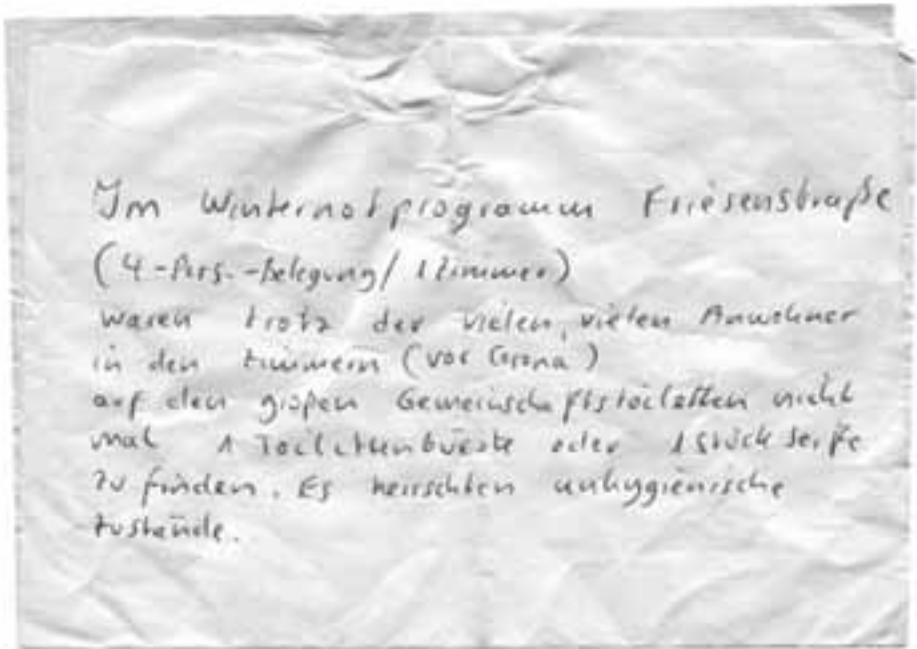 Im Winternotprogramm Friesenstraße
(4-Pers.-Belegung/ 1 Zimmer)
waren trotz der vielen, vielen Anwohner
in den Zimmern (vor Corona)
auf den großen Gemeinschaftstoiletten nicht
mal 1 Toilettenbürste oder 1 Stück Seife
zu finden. Es herrschten unhygienische
Zustände.